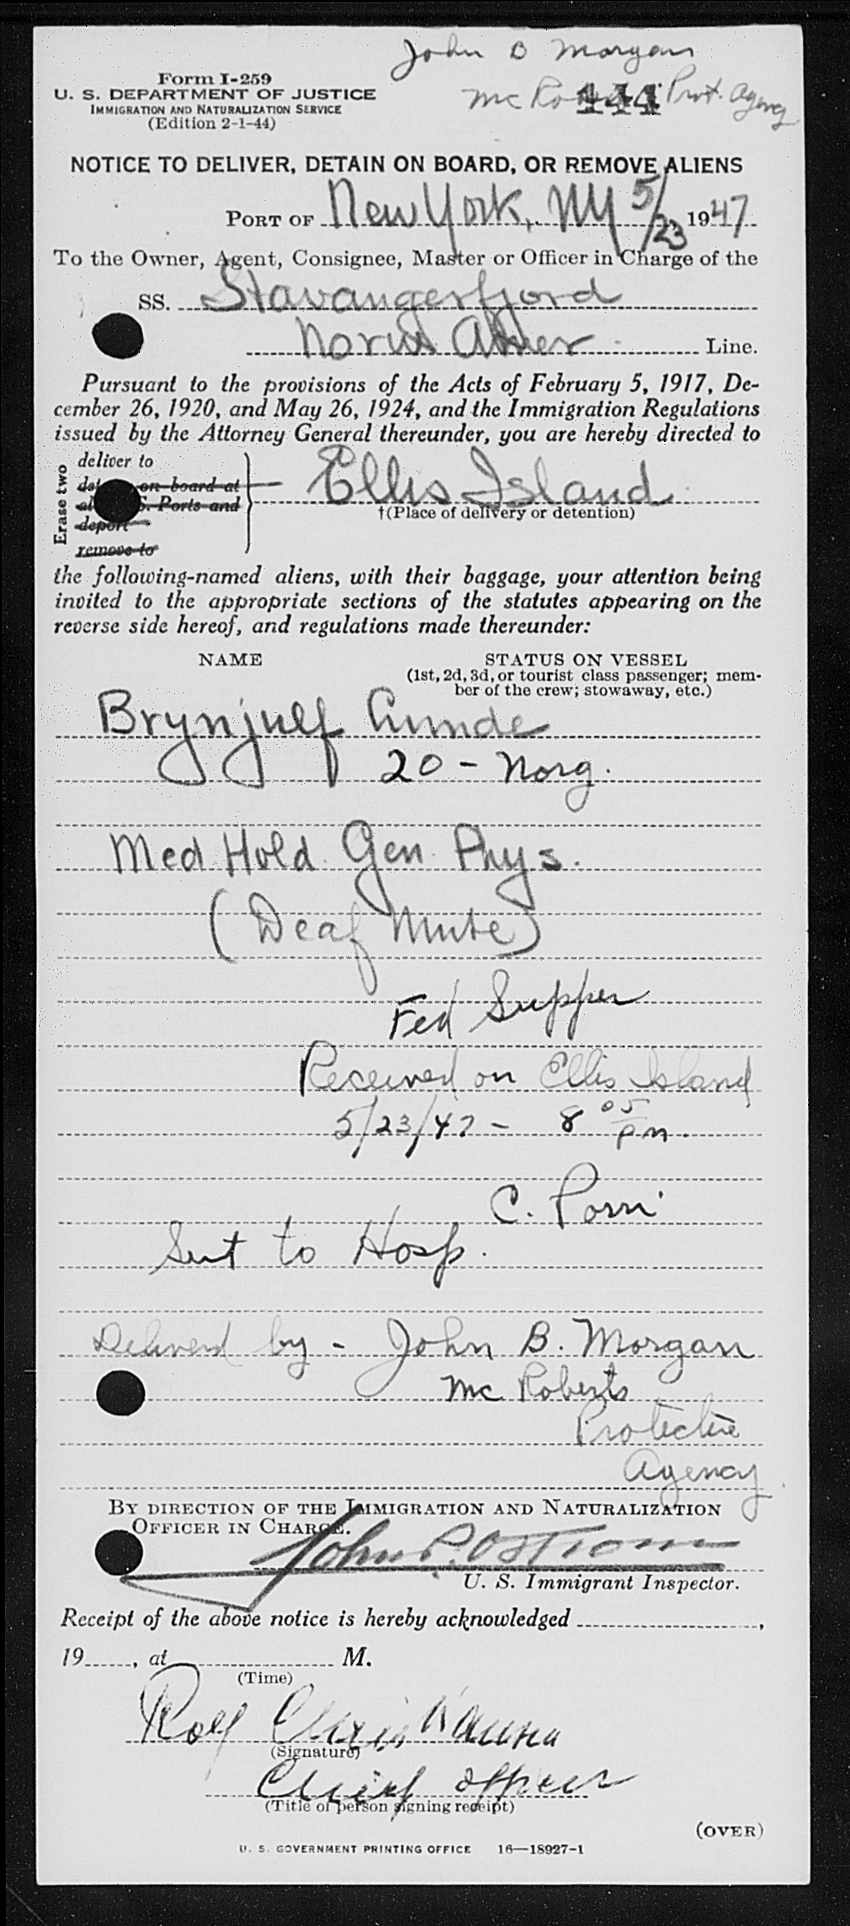 John B Morgan
Form I-259
U. S. DEPARTMENT OF JUSTICE
Mc 444 Prot. Agency
IMMIGRATION AND NATURALIZATION SERVICE
(Edition 2-1-44)
NOTICE TO DELIVER, DETAIN ON BOARD, OR REMOVE ALIENS
PORT OF New York, NY 5/23, 1947
To the Owner, Agent, Consignee, Master or Officer in Charge of the
SS. Stavangerfjord
Line.
Pursuant to the provisions of the Acts of February 5, 1917, De-
cember 26, 1920, and May 26, 1924, and the Immigration Regulations
issued by the Attorney General thereunder, you are hereby directed to
Erase two
deliver to
on board at
Ellis Island
S. Ports and
†(Place of delivery or detention)
deport
remove to
the following-named aliens, with their baggage, your attention being
invited to the appropriate sections of the statutes appearing on the
reverse side hereof, and regulations made thereunder:
NAME STATUS ON VESSEL
(1st, 2d, 3d, or tourist class passenger; mem-
ber of the crew; stowaway, etc.)
Brynjulf
20 - Norg.
Med Hold Gen Phys.
(Deaf Mute)
Fed Supper
Received on Ellis Island
5/23/47 - 8 05 pm.
C.
Sent to Hosp.
Delivered by - John B. Morgan
Mc Roberts
Protective
Agency
BY DIRECTION OF THE IMMIGRATION AND NATURALIZATION
OFFICER IN CHARGE.
John P. Ostrom
U. S. Immigrant Inspector.
Receipt of the above notice is hereby acknowledged ,
19 , at M.
(Time)
Rolf
(Signature)
Chief officer
(Title of person signing receipt)
(OVER)
U. S. GOVERNMENT PRINTING OFFICE 16—18927-1